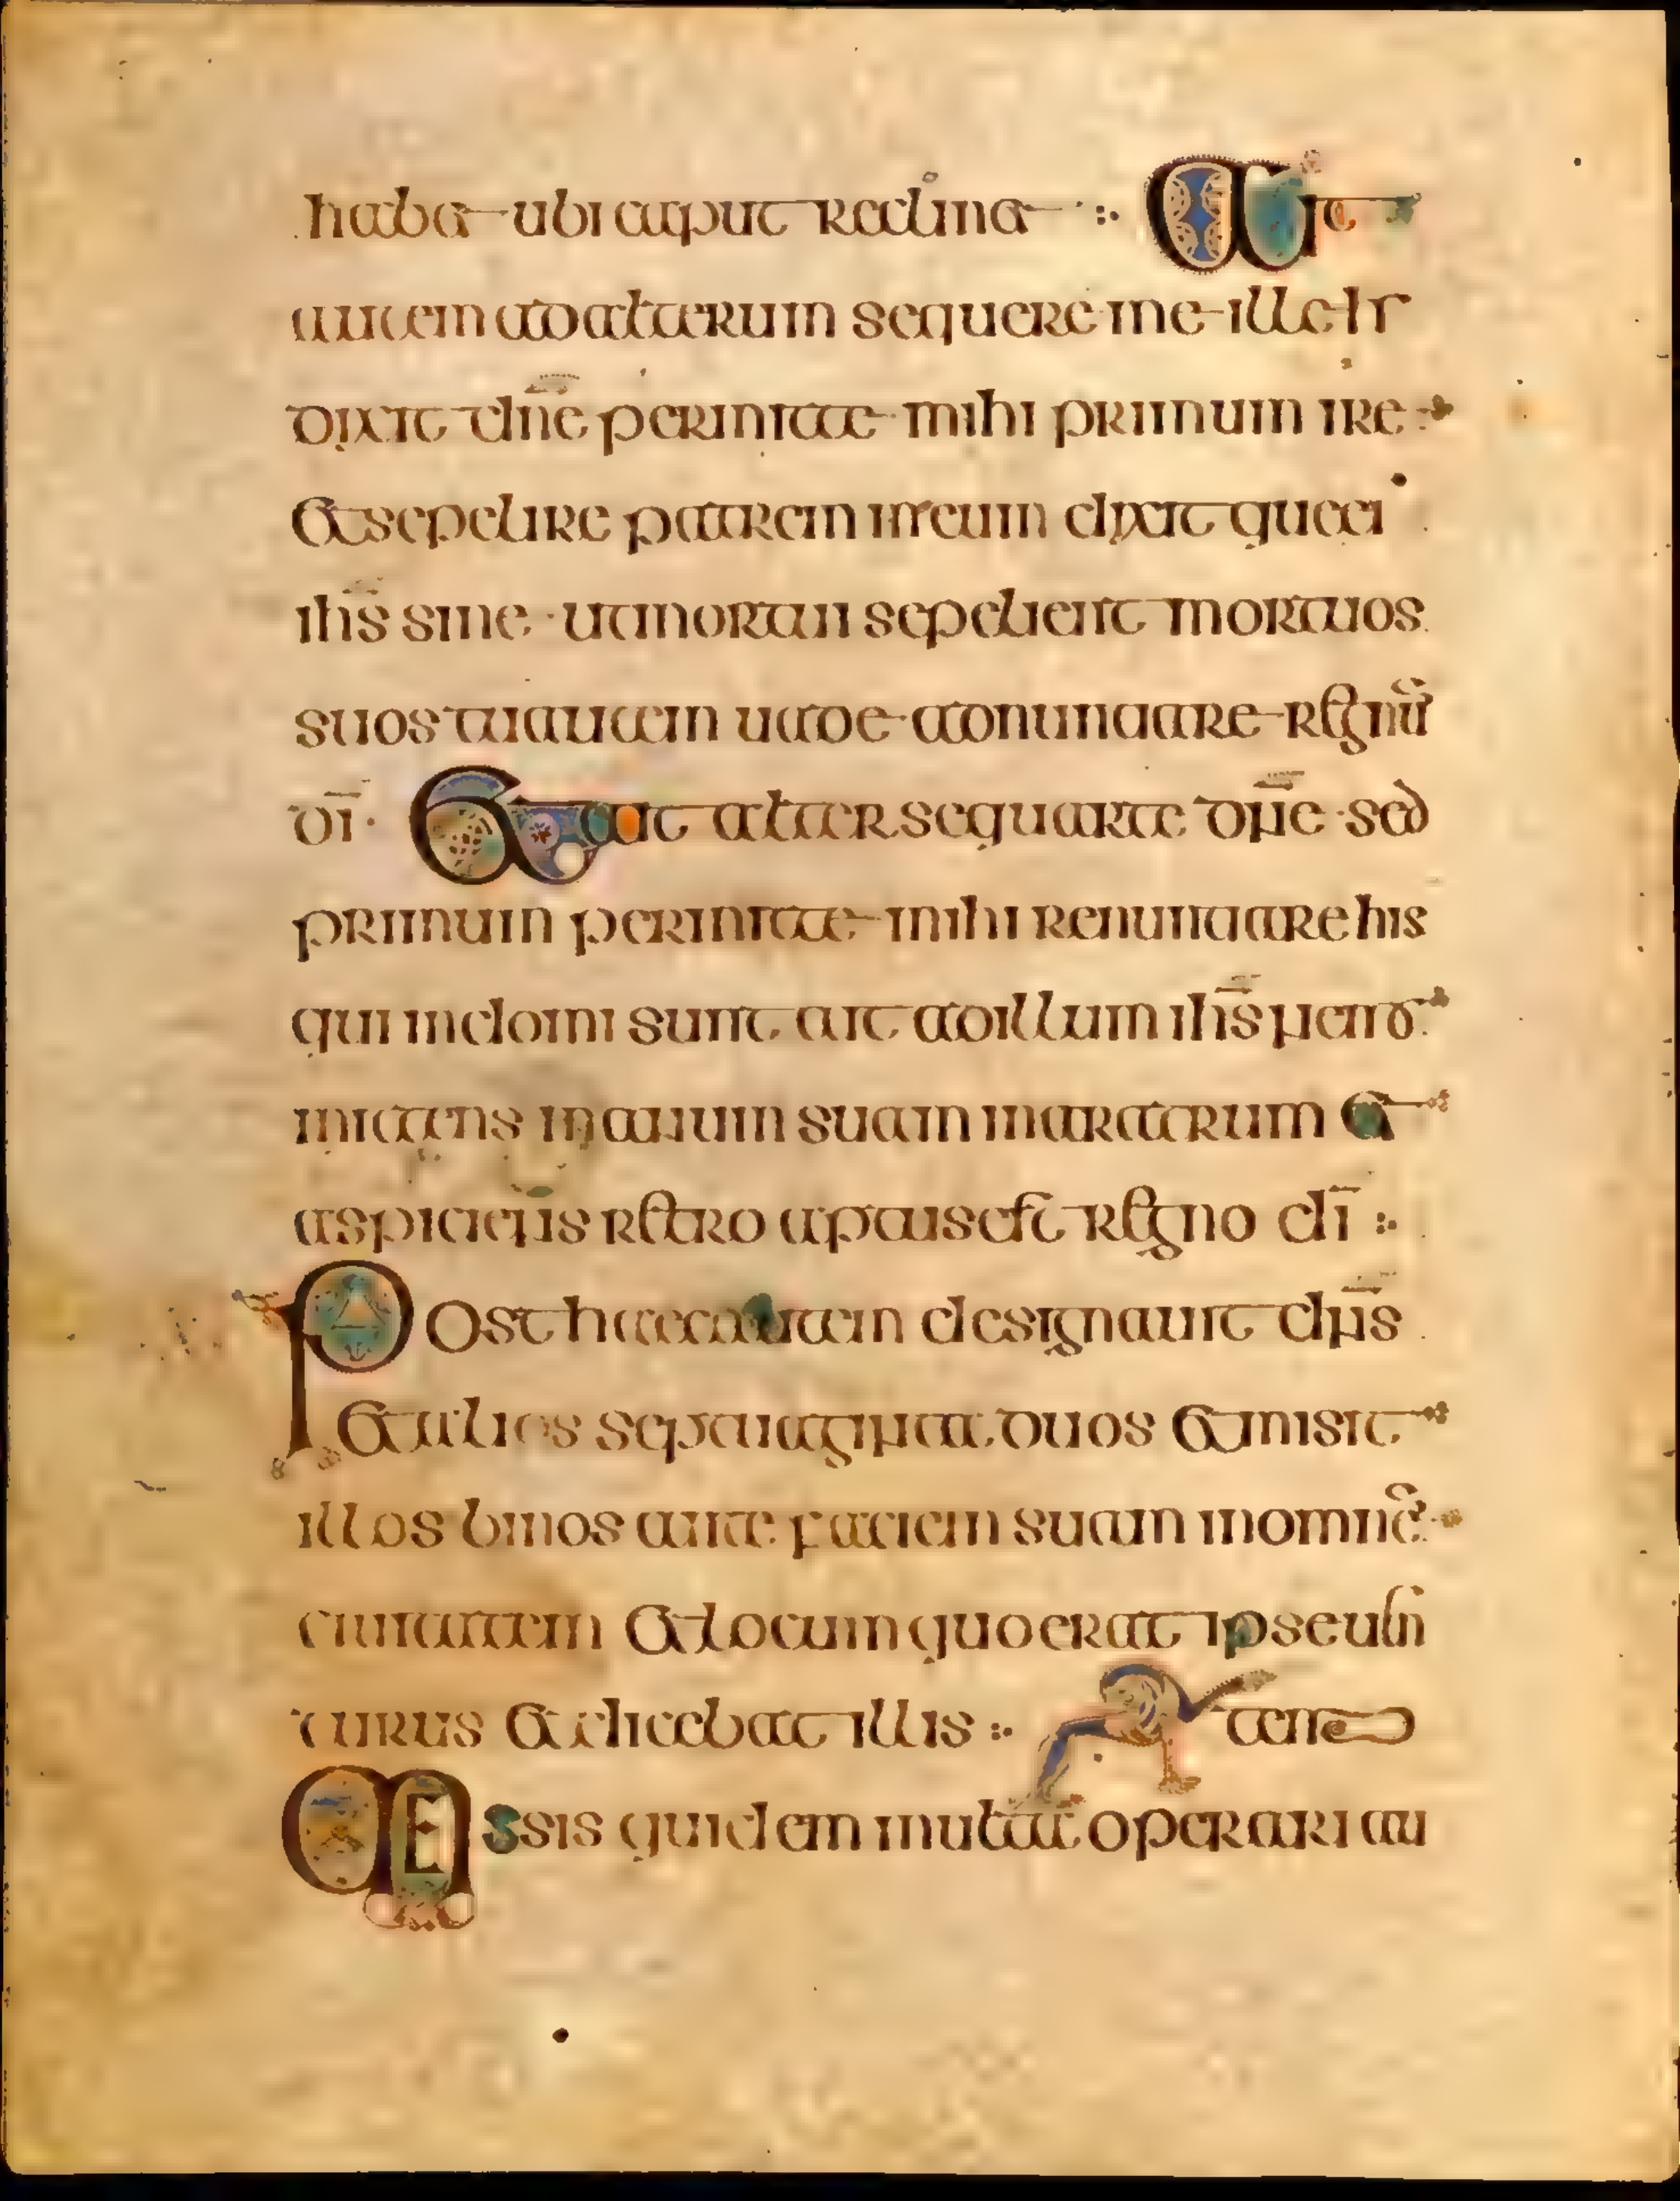 habet ubi caput reclinet :· Ait
autem ad alterum sequere me ille
dixit dn̄e permitte mihi primum ire
et sepelire patrem meum dixit quae ei
ih̄s sine ut mortui sepelient mortuos
suos tu autem uade adnuntiare regnū
dī· Et ait alter sequar te dn̄e sed
primum permitte mihi renuntiare his
qui in domi sunt ait ad illum ih̄s nemo
mittens manum suam in aratrum et
aspiciens retro aptus est regno dī :·
Post haec autem designauit dn̄s
et alios septuaginta duos et misit
illos binos ante faciem suam in omnē
ciuitatem et locum quo erat ipse uen
turus et dicebat illis :·
Messis quidem multa operari au